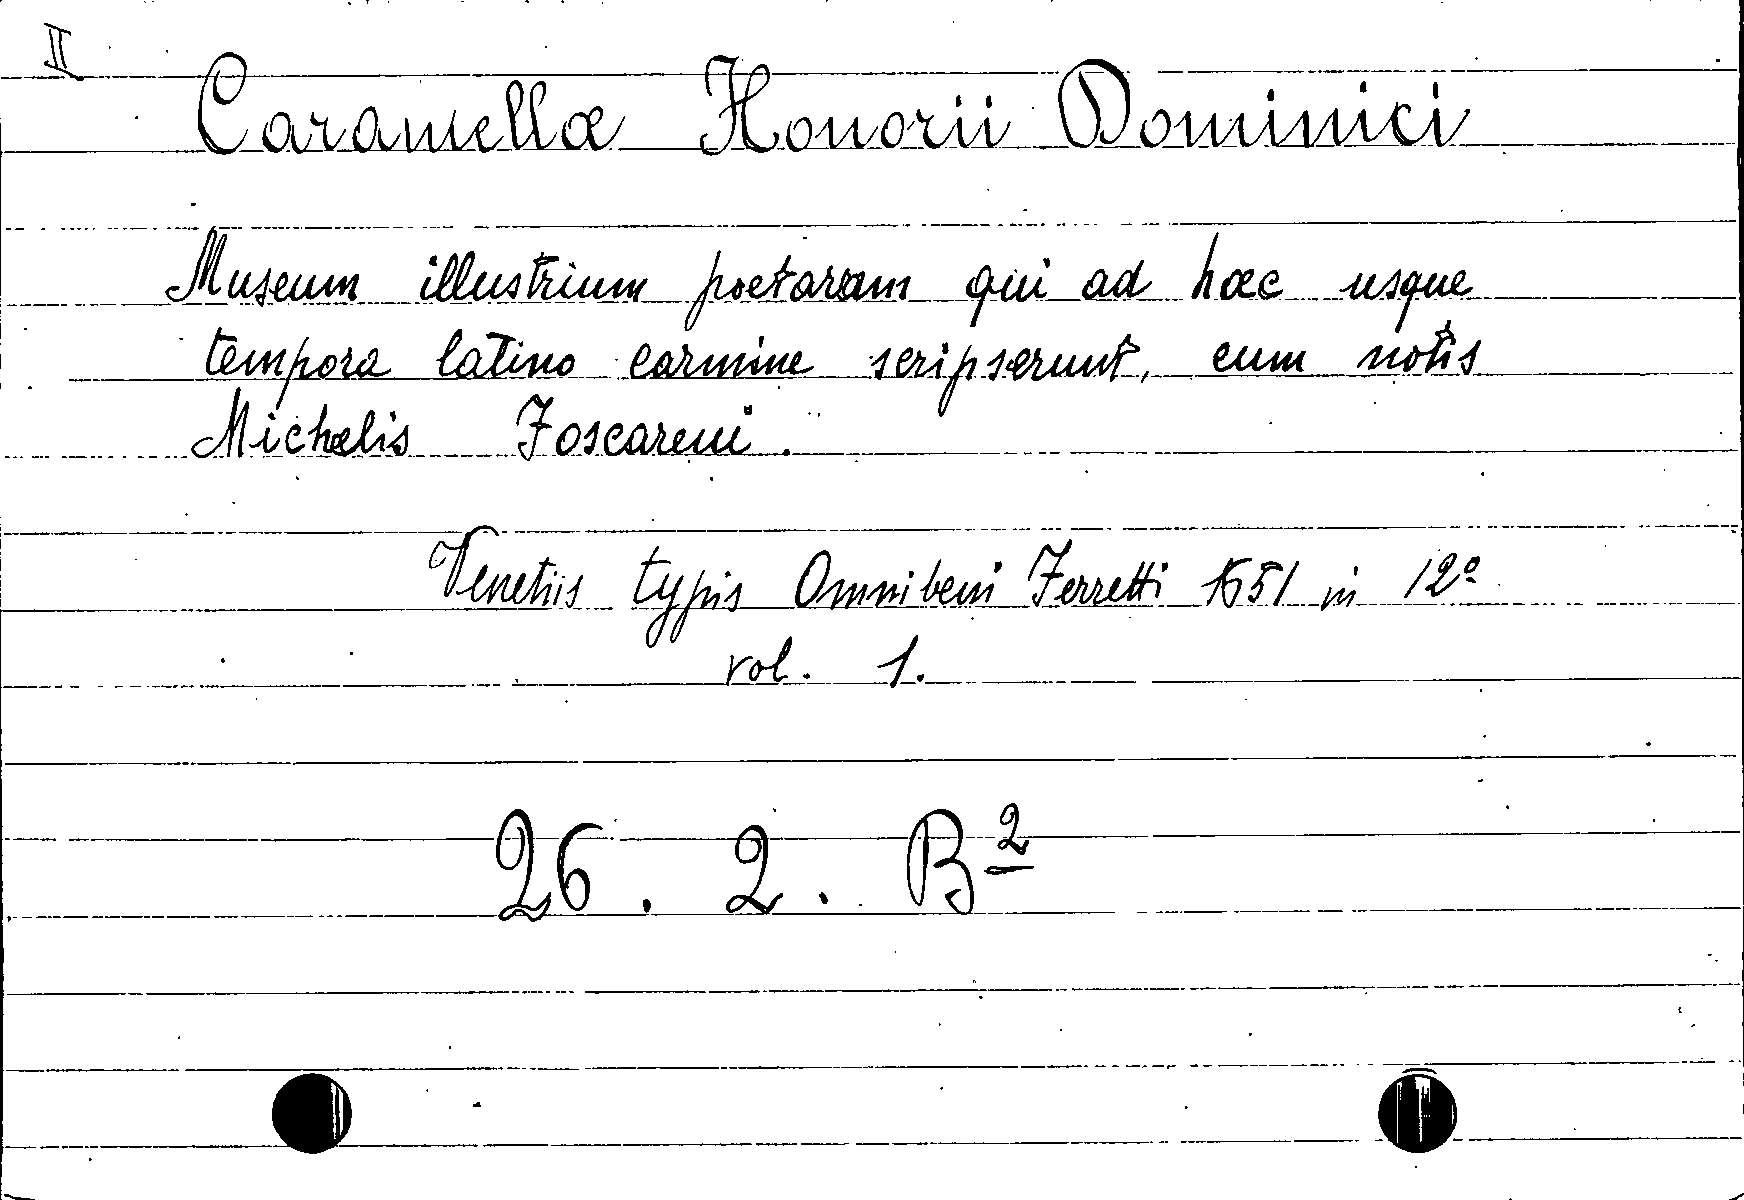 II
Caramellæ Honorii Dominici
Museum illustrium poetarum qui ad hæc usque
tempora latino carmine scripserunt, cum notis
Michælis Foscareni.
Venetiis typis Omnibeni Ferretti 1651 in 12º
vol. 1.
26. 2. B2